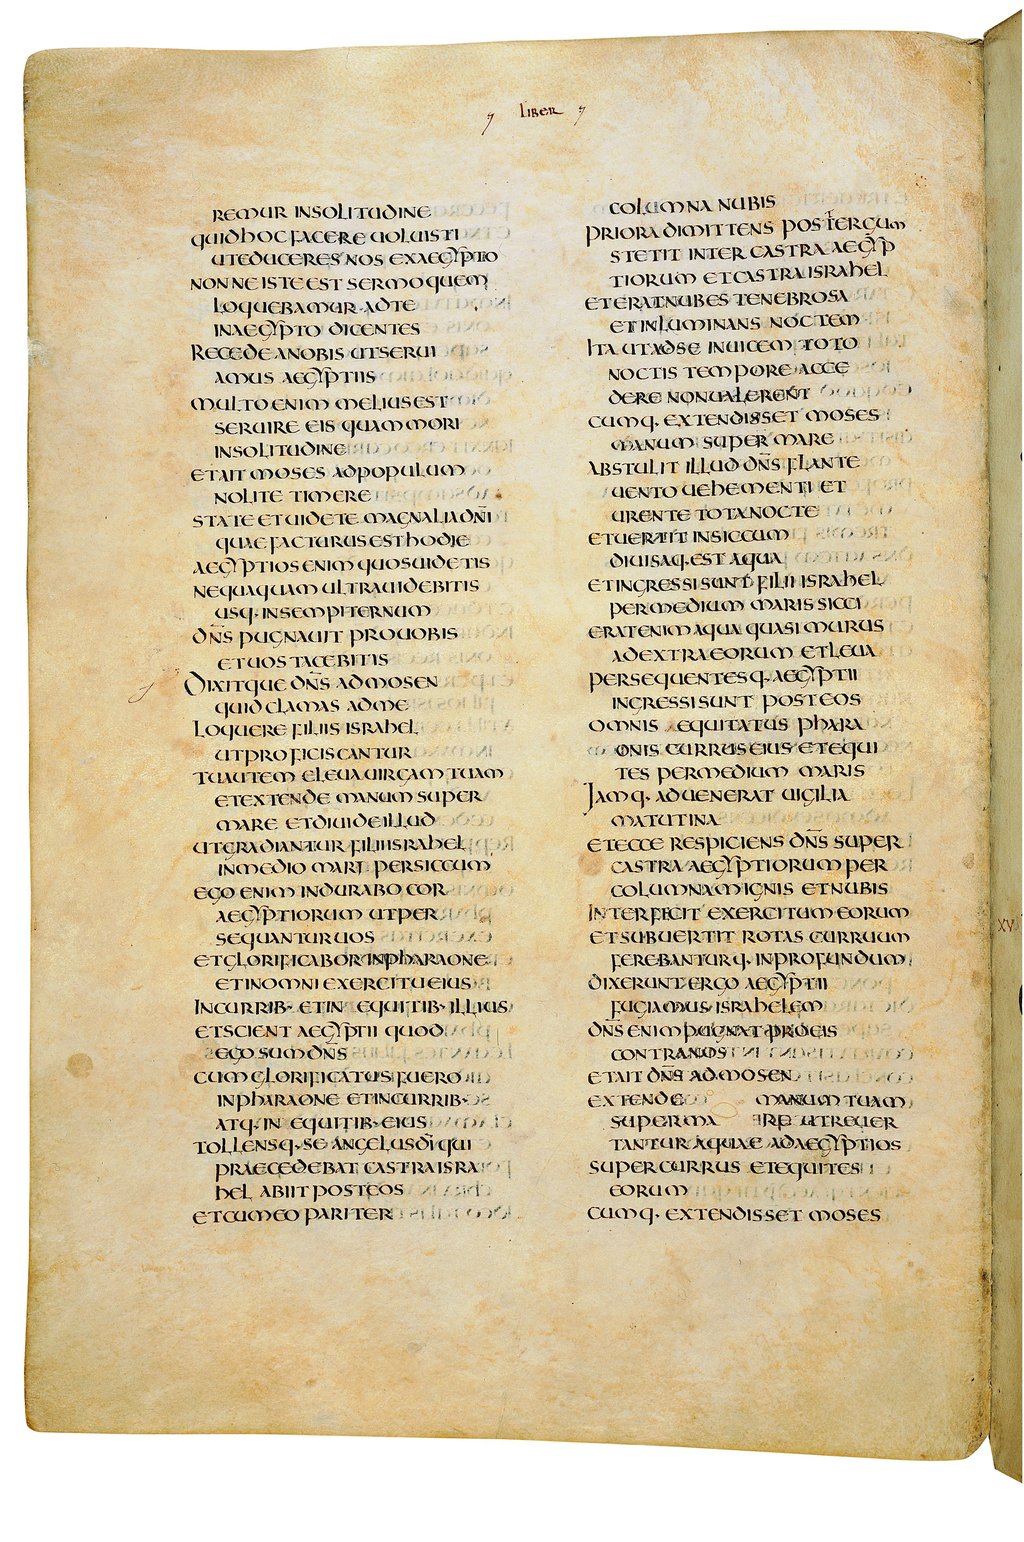 LIBER
REMUR INSOLITUDINE
QUIDHOC FACERE UOLUISTI
UTEDUCERES NOS EXAEGYPTO
NONNE ISTE EST SERMO QUEM
LOQUEBAMUR ADTE
INAEGYPTO DICENTES
RECEDE ANOBIS UTSERUI
AMUS AEGYPTIIS
MULTO ENIM MELIUS EST
SERUIRE EIS QUAM MORI
INSOLITUDINE
ETAIT MOSES ADPOPULUM
NOLITE TIMERE
STATE ET UIDETE MAGNALIA DN̄I
QUAE FACTURUS EST HODIE
AEGYPTIOS ENIM QUOS UIDETIS
NEQUAQUAM ULTRA UIDEBITIS
USQ· INSEMPITERNUM
DN̄S PUGNAUIT PRO UOBIS
ET UOS TACEBITIS
DIXITQUE DN̄S ADMOSEN
QUID CLAMAS ADME
LOQUERE FILIIS ISRAHEL
UT PROFICISCANTUR
TU AUTEM ELEUA UIRGAM TUAM
ET EXTENDE MANUM SUPER
MARE ET DIUIDE ILLUD
UT GRADIANTUR FILII ISRAHEL
IN MEDIO MARI PERSICCUM
EGO ENIM INDURABO COR
AEGYPTIORUM UT PER
SEQUANTUR UOS
ET GLORIFICABOR INPHARAONE
ET INOMNI EXERCITU EIUS
INCURRIB· ET IN EQUITIB· ILLIUS
ET SCIENT AEGYPTII QUOD
EGO SUM DN̄S
CUM GLORIFICATUS FUERO
INPHARAONE ET INCURRIB·
ATQ· IN EQUITIB· EIUS
TOLLENSQ· SE ANGELUS DĪ QUI
PRAECEDEBAT CASTRA ISRA
HEL ABIIT POST EOS
ET CUM EO PARITER
COLUMNA NUBIS
PRIORA DIMITTENS POST TERGUM
STETIT INTER CASTRA AEGYP
TIORUM ET CASTRA ISRAHEL
ET ERAT NUBES TENEBROSA
ET INLUMINANS NOCTEM
ITA UT ADSE INUICEM TOTO
NOCTIS TEMPORE ACCE
DERE NON UALERENT
CUMQ· EXTENDISSET MOSES
MANUM SUPER MARE
ABSTULIT ILLUD DN̄S FLANTE
UENTO UEHEMENTI ET
URENTE TOTA NOCTE
ET UERTIT INSICCUM
DIUISAQ· EST AQUA
ET INGRESSI SUNT FILII ISRAHEL
PER MEDIUM MARIS SICCI
ERAT ENIM AQUA QUASI MURUS
AD EXTRA EORUM ET LEUA
PERSEQUENTESQ· AEGYPTII
INGRESSI SUNT POST EOS
OMNIS EQUITATUS PHARA
ONIS CURRUS EIUS ET EQUI
TES PER MEDIUM MARIS
IAMQ· ADUENERAT UIGILIA
MATUTINA
ET ECCE RESPICIENS DN̄S SUPER
CASTRA AEGYPTIORUM PER
COLUMNAM IGNIS ET NUBIS
INTERFICIT EXERCITUM EORUM
ET SUBUERTIT ROTAS CURRUUM
FEREBANTURQ· INPROFUNDUM
DIXERUNT ERGO AEGYPTII
FUGIAMUS ISRAHELEM
DN̄S ENIM PUGNAT PRO EIS
CONTRA NOS
ET AIT DN̄S AD MOSEN
EXTENDE MANUM TUAM
SUPER MARE UT REUER
TANTUR AQUAE AD AEGYPTIOS
SUPER CURRUS ET EQUITES
EORUM
CUMQ· EXTENDISSET MOSES